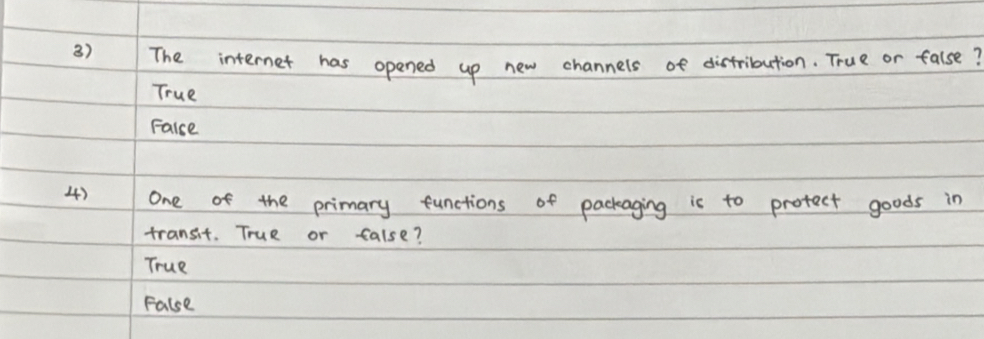 3) The internet has opened up new channels of distribution. True or false?
True
False
4) One of the primary functions of packaging is to protect goods in
transit. True or false?
True
False